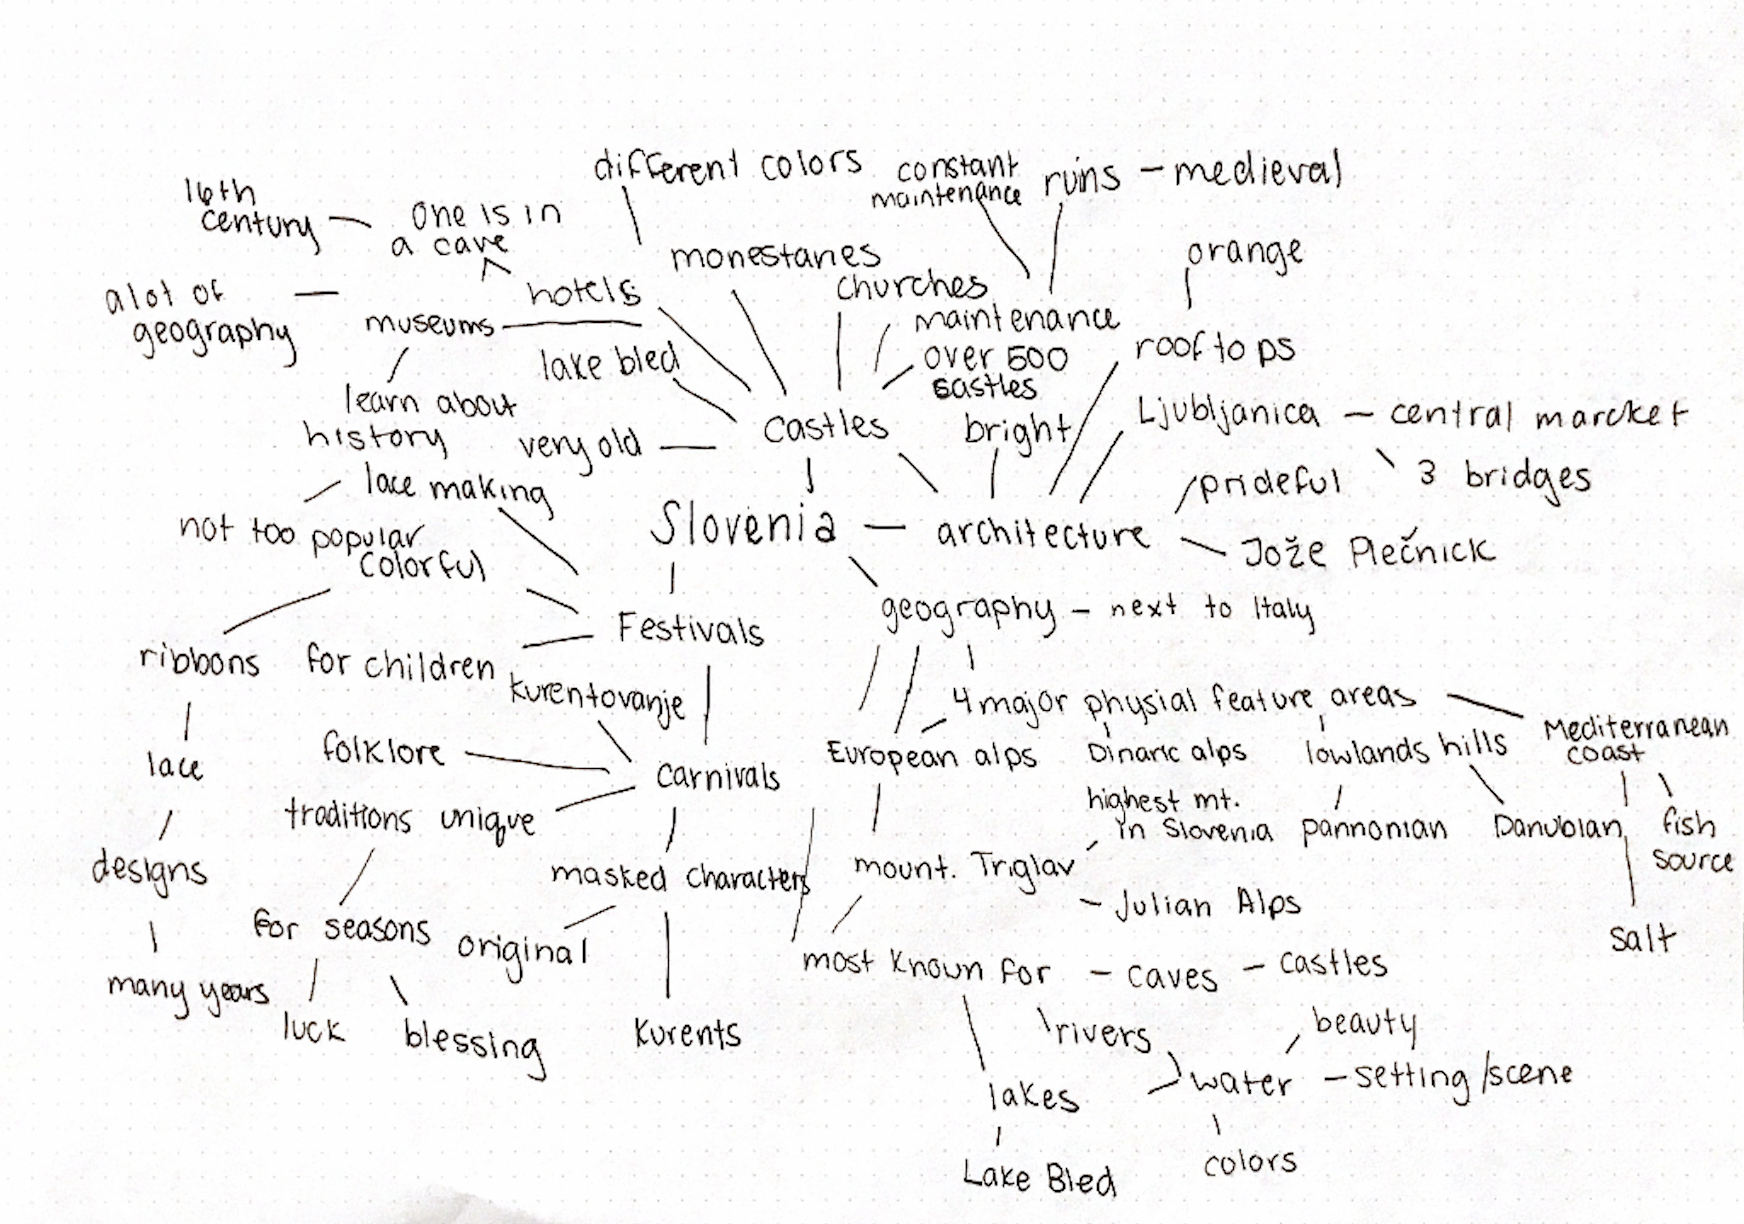 different colors
constant
maintenance
ruins - medieval
16th
century
one is in
a cave
monestaries
orange
hotels
churches
a lot of
geography
museums
maintenance
rooftops
lake bled
over 500
castles
learn about
history
very old
castles
bright
Ljubljanica - central marcket
lace making
prideful
3 bridges
not too popular
Slovenia - architecture
Jože Plečnick
colorful
Festivals
geography - next to Italy
ribbons
for children
kurentovanje
4 major physial feature areas
Mediterranean
coast
folklore
carnivals
European alps
Dinaric alps
lowlands
hills
lace
traditions
unique
highest mt.
in Slovenia
pannonian
Danubian
fish
source
designs
masked characters
mount. Triglav
- Julian Alps
for seasons
original
salt
most known for - caves - castles
many years
luck
blessing
kurents
rivers
beauty
lakes
water - setting/scene
Lake Bled
colors